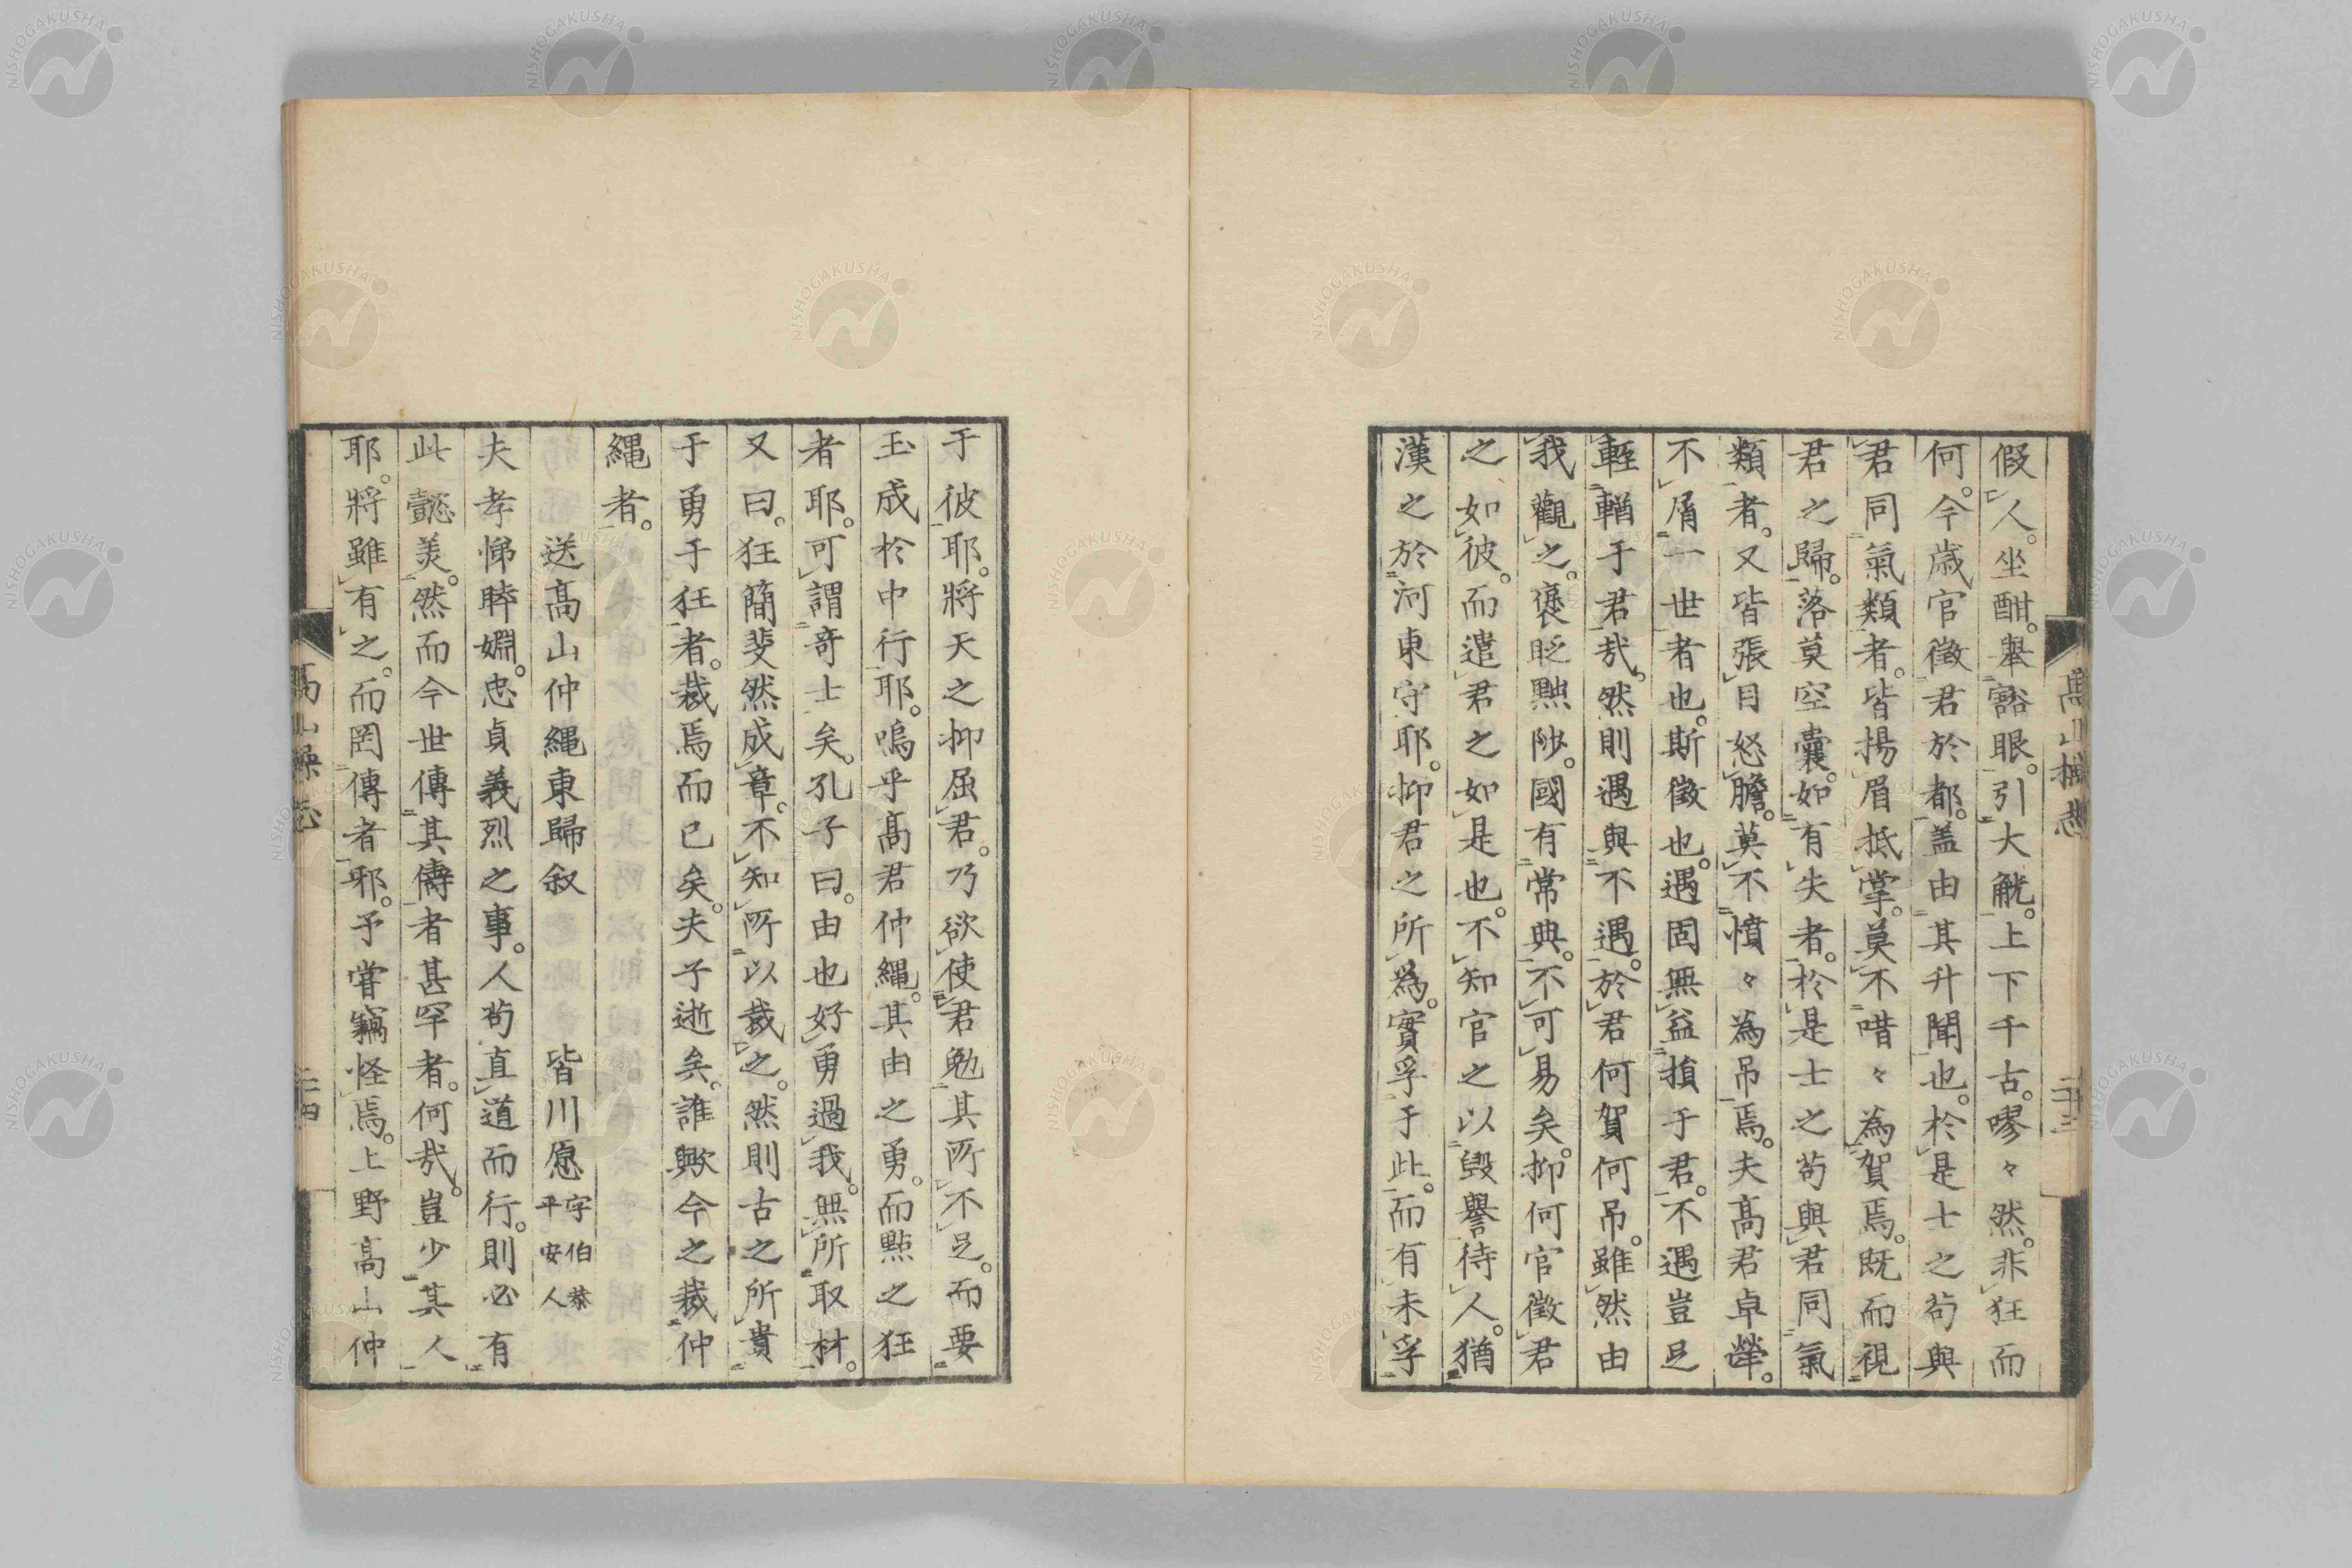 假人。坐酣。舉豁眼。引大觥。上下千古。嘐々然。非狂而
何。今歳官徵君於都。蓋由其升聞也。於是士之苟與
君同氣類者。皆揚眉抵掌。莫不唶々為賀焉。既而視
君之歸。落莫空囊。如有失者。於是士之苟與君同氣
類者。又皆張目怒膽。莫不憤々為吊焉。夫髙君卓犖。
不屑一世者也。斯徵也。遇固無益損于君。不遇豈足
輊輶于君哉。然則遇與不遇。於君何賀何吊。雖然由
我觀之。褒貶黜陟。國有常典。不可易矣。抑何官徵君
之如彼。而遣君之如是也。不知官之以毀譽待人。猶
漢之於河東守耶。抑君之所為。實孚于此。而有未孚
髙山操志
二十三
于彼耶。將天之抑屈君。乃欲使君勉其所不足。而要
玉成於中行耶。嗚乎髙君仲繩。其由之勇。而㸃之狂
者耶。可謂竒士矣。孔子曰。由也好勇過我。無所取材。
又曰。狂簡斐然成章。不知所以裁之。然則古之所貴
于勇于狂者。裁焉而已矣。夫子逝矣。誰歟今之裁仲
繩者。
送髙山仲繩東歸叙 皆川愿 字伯恭 平安人
夫孝悌睦婣。忠貞義烈之事。人苟直道而行。則必有
此懿美。然而今世傳其傳者甚罕者。何哉。豈少其人
耶。將雖有之。而罔傳者耶。予嘗竊怪焉。上野髙山仲
髙山操志
二十四